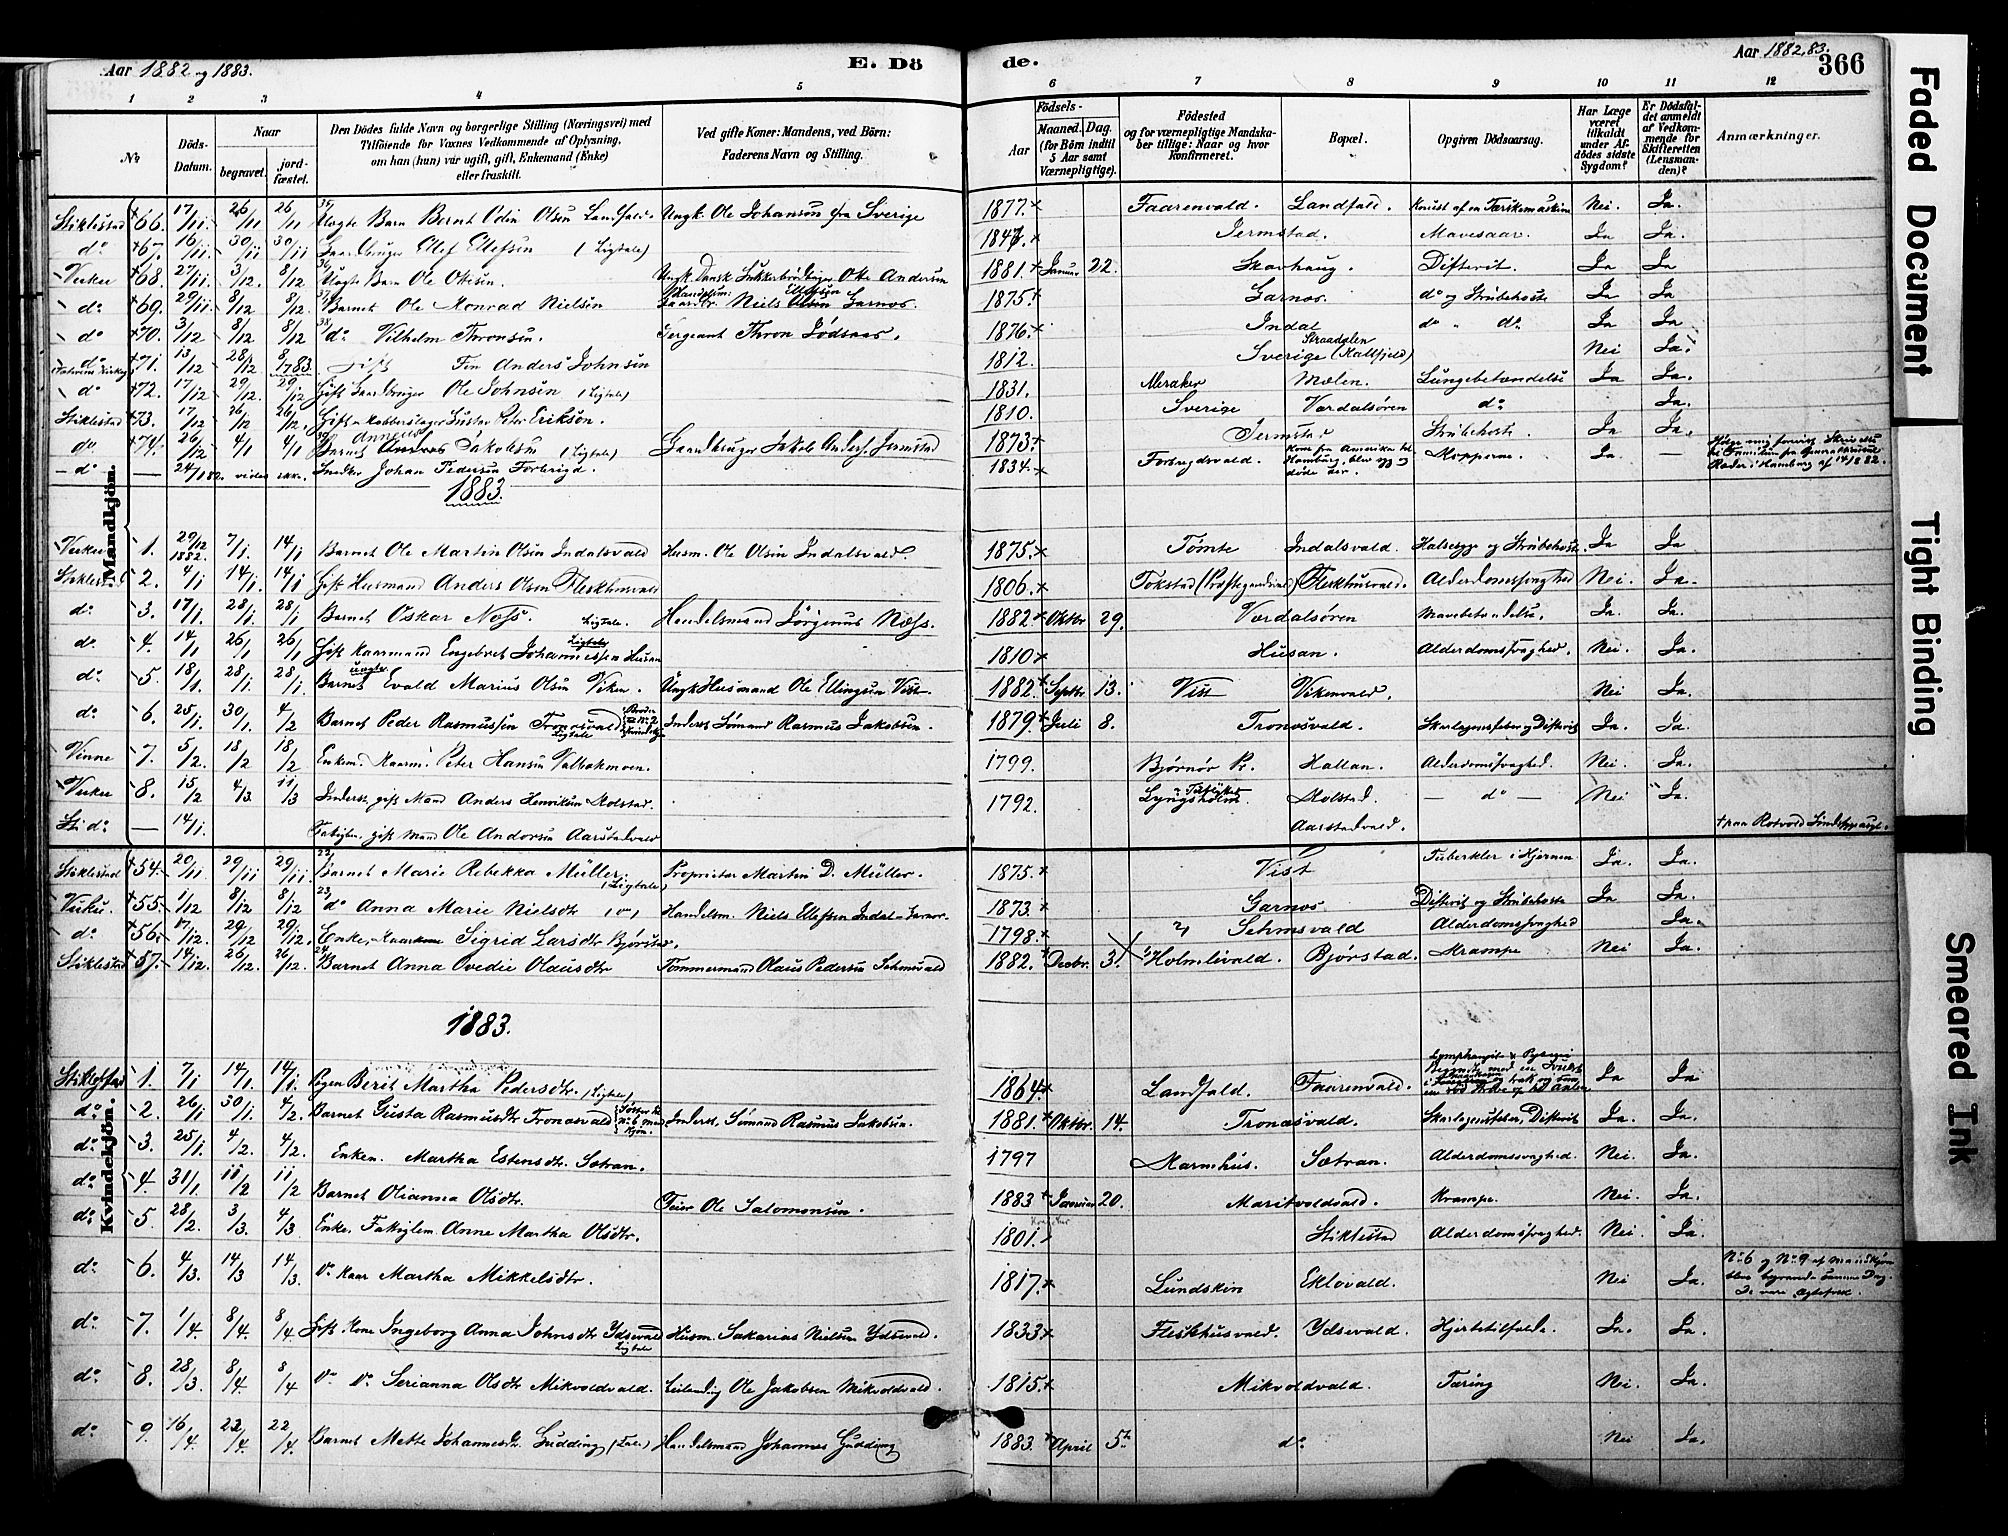 Aar 1882 og 1883.
E. Dö
de.
Aar 1882, 83.
366
1 2 3 4 5 6 7 8 9 10 11 12
No
Döds-Datum.
Naar
begravet.
jord-fæstet.
Den Dödes fulde Navn og borgerlige Stilling (Næringsvei) med Tilföiende for Voxnes Vedkommende af Oplysning, om han (hun) var ugift, gift, Enkemand (Enke) eller fraskilt.
Ved gifte Koner: Mandens, ved Börn: Faderens Navn og Stilling.
Födsels-
Aar
Maaned. Dag. (for Börn indtil 5 Aar samt Værnepligtige).
Födested og for værnepligtige Mandskaber tillige: Naar og hvor konfirmeret.
Bopæl.
Opgiven Dödsaarsag.
Har Læge været tilkaldt under Afdödes sidste Sygdom?
Er Dödsfaldet anmeldt af Vedkommende for Skifteretten (Lensmanden)?
Anmærkninger.
Mandkjön.
Stiklestad 66. 17/11 26/11 26/11 Uægte Barn Bernt Odin Olsen Landfald. Ungk. Ole Johansön fra Sverige 1877. Faarenvald. Landfald. Knust af en Tærskemaskine Nei. Ja.
do 67. 16/11 30/11 30/11 Gaardbruger Olef Ellefsen (Ligtale) 1847. Jermstad. Mavesaar. Ja Ja.
Verken 68. 27/11 3/12 8/12 Uægte Barn Ole Olesen. Ungk. Dansk Sukkerbrödbager Ole Andersen 1881. Januar 22. Skavhaug. Difterit. Ja Ja
do 69. 29/11 8/12 8/12 Barnet Ole Monrad Nielsen Gaardbr. Niels Ellefsen Garnos. 1875. Garnos. do og Strubehoste Ja Ja
do 70. 3/12 8/12 8/12 do Vilhelm Thronsen. Sergeant Thron Lödsaas. 1876. Indal do do Ja Ja
do 71. 13/12 28/12 8/1 83. gift Fin Anders Johnsen 1812. Sverige (Kallfjeld) Straadalen Nei Ja.
do 72. 17/12 29/12 29/12 Gift Gaardbruger Ole Johnsen (Ligtale) 1831. Meraker Mælen. Lungebetændelse Ja Ja.
Stiklestad 73. 17/12 26/12 26/12 Gift Kobberslager Gustav Peter Eriksen. 1810. Sverige Værdalsören do Ja.
do 74. 26/12 4/1 4/1 Barnet Jakobsen (Ligtale) Gaardbruger Jakob Anders. Jermstad 1873. Jermstad Strubehoste. Ja Ja.
do — 24/1 82. vides ikke. Snedker Johan Pedersen Forbregd. 1834. Forbregdsvald. Kom fra Amerika til Hamburg, blev syg og döde der. Kopperne. Ja —
1883.
Verken 1. 29/12 1882. 7/1 14/1 Barnet Ole Martin Olsen Indalsvald Husm. Ole Olsen Indalsvald. 1875. Tömte Indalsvald. Halssyge og Strubehoste Ja Ja
Stiklestad 2. 4/1 14/1 14/1 Gift Husmand Anders Olsen Fleskhusvald 1806. Tokstad (Præstegaardsvald) Fleskhusvald. Alderdomssvaghed Nei. Ja.
do 3. 17/1 28/1 28/1 Barnet Oskar Næss. Ligtale. Handelsmand Jörginus Næss. 1882 Oktbr 29. Værdalsören Mavebetændelse. Ja. Ja.
do 4. 14/1 26/1 26/1 Gift Kaarmand Engebret Johannessen Husan Ligtale 1810 Husan. Alderdomssvaghed. Nei. Ja.
do 5. 18/1 28/1 28/1 uægte Barnet Evald Marius Olsen Viken. Ungk. Husmand Ole Ellingsen Vist. 1882. Septbr. 13. Vist Vikenvald. Nei Ja.
do 6. 25/1 30/1 4/2 Barnet Peder Rasmussen Tronæsvald Ligtale Inderst, Sömand Rasmus Jakobsen. 1879. Juli 8. Tronæsvald. Skarlagensfeber og Difterit Ja. Ja
Vinne 7. 5/2 18/2 18/2 Enkem. Kaarm. Peter Hansen Valbakmoen. 1799. Björnör Pr. Hallan. Alderdomssvaghed. Nei. Ja.
Verken 8. 15/2 4/3 11/3 Inderst, gift Mand Anders Henriksen Molstad. 1792. Lyngsholm Molstad. do Nei Ja.
Sti do — 14/1. Fattiglem, gift Mand Ole Andersen Aarstadvald Aarstadvald. + paa Rotvold Sindssygeasyl.
Kvindekjön.
Stiklestad 54. 20/11 29/11 29/11 Barnet Marie Rebekka Müller. (Ligtale) Proprietær Martin D. Müller. 1875. Vist Tuberkler i Hjernen Ja. Ja.
Verken. 55. 1/12 8/12 8/12 do Anna Marie Nielsdtr Handelsm. Niels Ellefsen Indal Garnos. 1873. Garnos Difterit og Strubehoste Ja Ja.
do 56. 17/12 29/12 29/12 Enke, Kaarkone Sigrid Larsdtr Björstad. 1798. Sehmsvald Alderdomssvaghed Ja.
Stiklestad 57. 14/12 26/12 26/12 Barnet Anna Ovedie Olausdtr Tömmermand Olaus Pedersen Sehmsvald 1882. Decbr. 3. Holmlivald. Björstad. Krampe Nei Ja.
1883.
Stiklestad 1. 7/1 14/1 14/1 Pigen Berit Martha Pedersdtr. (Ligtale) 1864. Landfald. Faarenvald. Ja Ja
do 2. 26/1 30/1 4/2 Barnet Gusta Rasmusdtr Tronæsvald Inderst, Sömand Rasmus Jakobsen. 1881. Oktbr. 14. Tronæsvald. Skarlagensfeber, Difterit Ja. Ja.
do 3. 25/1 4/2 4/2 Enken. Martha Estensdtr. Sætran. 1797 Marmhus. Sætran. Alderdomssvaghed. Nei. Ja.
do 4. 31/1 11/2 11/2 Barnet Olianna Olsdtr. Feier Ole Salomonsen. 1883 Januar 20. Maritvoldvald. Krampe. Nei Ja.
do 5. 28/2 3/3 4/3 Enke, Fattiglem Anne Martha Olsdtr. 1801. Stiklestad Alderdomssvaghed. Nei. Ja.
do 6. 4/3 14/3 14/3 do Kaar Martha Mikkelsdtr. 1817. Lundskin Eklovald. Nei Ja. No 6 og No 9 af Mandskjön bleve begravede samme Dag. De vare Ægtefolk.
do 7. 1/4 8/4 8/4 Gift Kone Ingeborg Anna Johnsdtr Ydsevald Ligtale Husm. Sakarias Nielsen Ydsevald. 1833 Fleskhusvald. Ydsevald. Hjertetilfælde. Ja. Ja.
do 8. 28/3 8/4 8/4 do do Serianna Olsdtr Mikvoldvald. Leilending Ole Jakobsen Mikvoldvald. 1815. Mikvoldvald. Tæring Nei. Ja.
do 9. 16/4 22/4 22/4 Barnet Mette Johannesdtr. Gudding (Tale) Handelsmand Johannes Gudding 1883. April 5te do Nei Ja.
Faded Document
Tight Binding
Smeared Ink